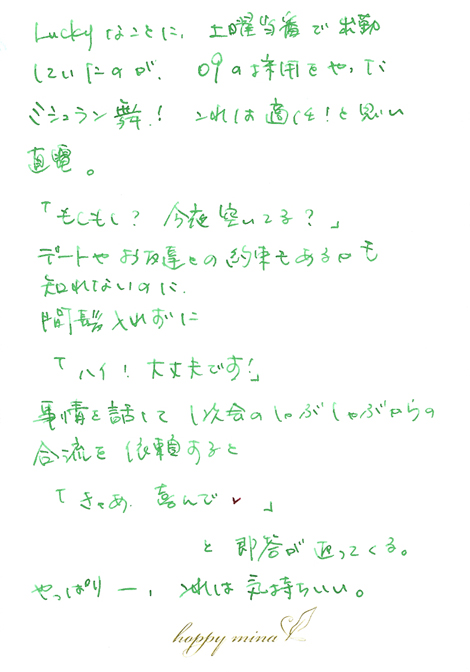 Luckyなことに、土曜当番で出勤
していたのが、09の採用をやった
ミシュラン舞!これは適任!と思い
直電。
「もしもし?今夜空いてる?」
デートやお友達との約束もあるかも
知れないのに、
間髪入れずに
「ハイ!大丈夫です!」
事情を話して1次会のしゃぶしゃぶからの
合流を依頼すると
「きゃあ、喜んで♥」
と即答が返ってくる。
やっぱりー、これは気持ちいい。
happy mina